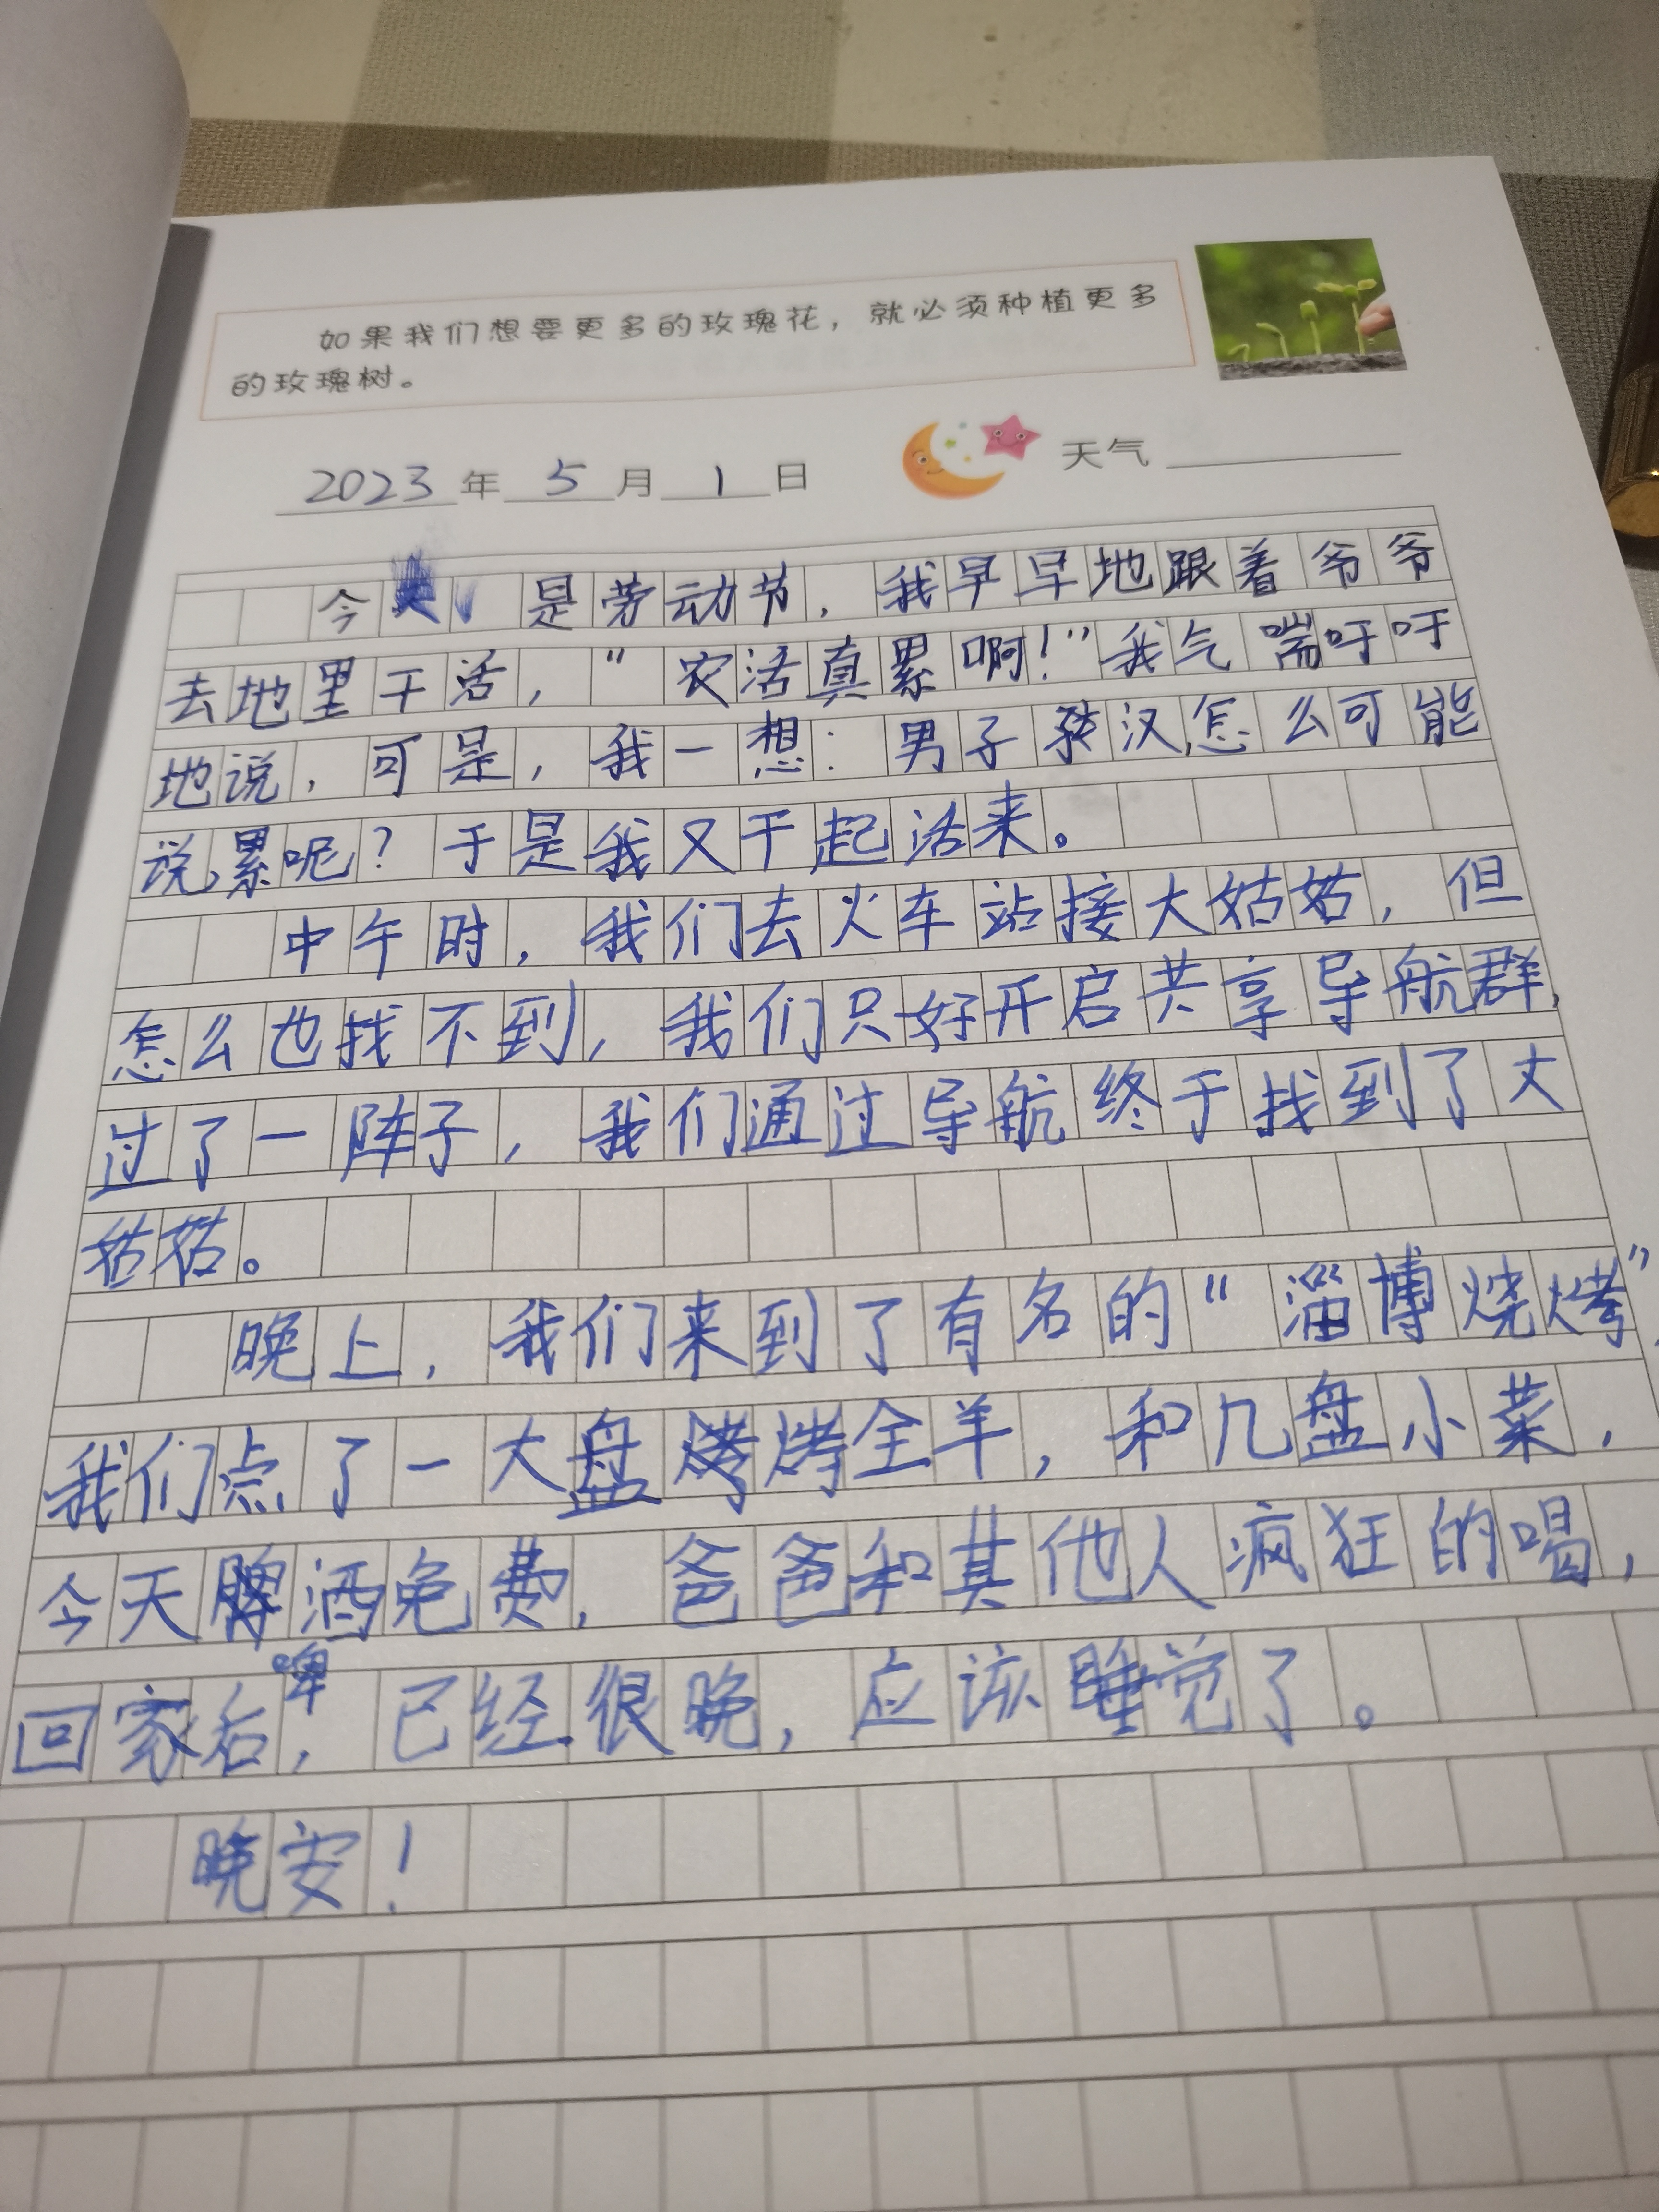 如果我们想要更多的玫瑰花，就必须种植更多
的玫瑰树。
2023年5月1日 天气
今 是劳动节，我早早地跟着爷爷
去地里干活，“农活真累啊！”我气喘吁吁
地说，可是，我一想：男子汉怎么可能
说累呢？于是我又干起活来。
中午时，我们去火车站接大姑姑，但
怎么也找不到，我们只好开启共享导航群，
过了一阵子，我们通过导航终于找到了大
姑姑。
晚上，我们来到了有名的“淄博烧烤”，
我们点了一大盘烤全羊，和几盘小菜，
今天 酒免费，爸爸和其他人疯狂的喝，
啤
回家后，已经很晚，应该睡觉了。
晚安！